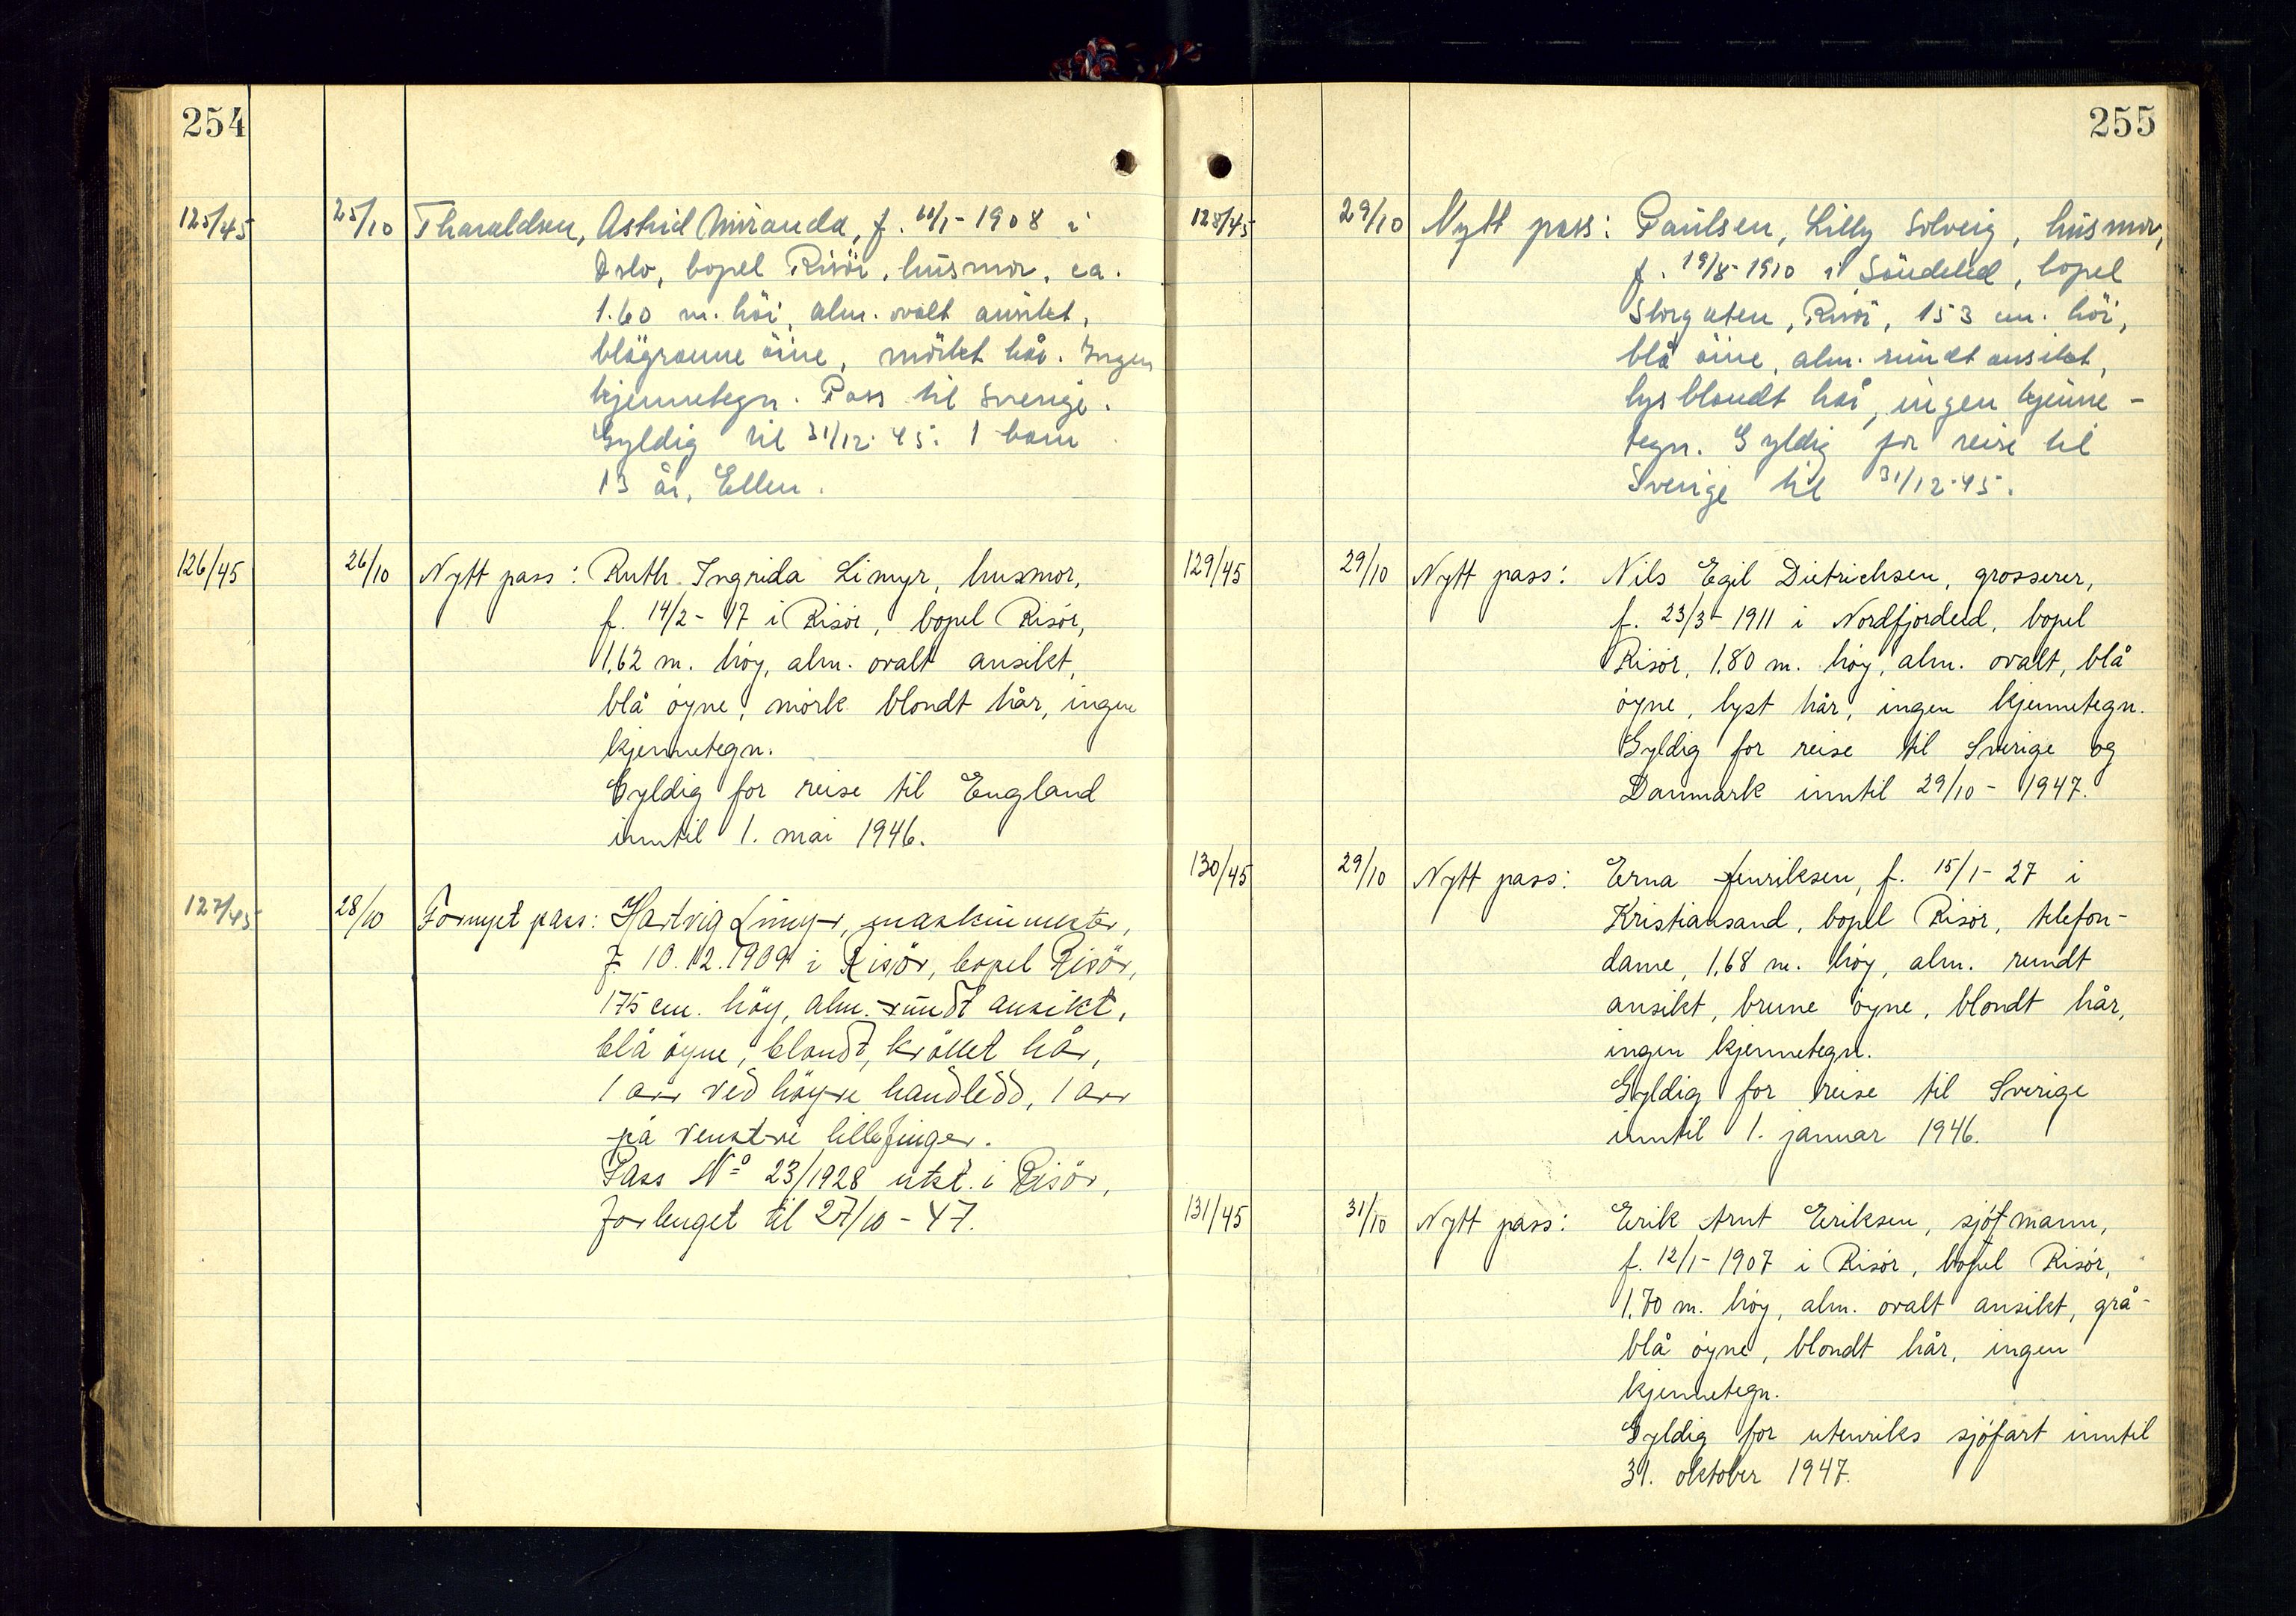 254
125/45 25/10 Tharaldsen, Astrid Miranda, f. /1-1908 i
Oslo, bopel Risör, husmor, ca.
1.60 m. höi, alm. ovalt ansikt,
blågrønne öine, mörkt hår. Ingen
kjennetegn. Pass til Sverige.
Gyldig til 31/12-45. 1 barn
13 år, Ellen.
126/45 26/10 Nytt pass: Ruth Ingrida Limyr, husmor,
f. 14/2-17 i Risór, bopel Risór,
1,62 m. hóy, alm. ovalt ansikt,
blå óyne, mórk blondt hår, ingen
kjennetegn.
Gyldig for reise til England
inntil 1. mai 1946.
127/45 28/10 Fornyet pass: Hartvig Limyr, maskinmester,
f. 10.12.1909 i Risör, bopel Risör,
175 cm. höy, alm. rundt ansikt,
blå öyne, blondt, kröllet hår,
1 arr ved höyre håndledd, 1 arr
på venstre lillefinger.
Pass Nº 23/1928 utst. i Risör,
forlenget til 27/10-47.
255
128/45 29/10 Nytt pass: Paulsen, Lilly Solveig, husmor,
f. 19/8-1910 i Söndeled, bopel
Storgaten, Risör, 153 cm. höi,
blå öine, alm. rundt ansikt,
lys blondt hår, ingen kjenne-
tegn. Gyldig for reise til
Sverige til 31/12-45.
129/45 29/10 Nytt pass: Nils Egil Dietrichsen, grosserer,
f. 23/3-1911 i Nordfjordeid, bopel
Risór, 1,80 m. hóy, alm. ovalt, blå
óyne, lyst hår, ingen kjennetegn.
Gyldig for reise til Sverige og
Danmark inntil 29/10-1947.
130/45 29/10 Nytt pass: Erna Henriksen, f. 15/1-27 i
Kristiansand, bopel Risór, telefon-
dame, 1,68 m. hóy, alm. rundt
ansikt, brune óyne, blondt hår,
ingen kjennetegn.
Gyldig for reise til Sverige
inntil 1. januar 1946.
131/45 31/10 Nytt pass: Erik Arnt Eriksen, sjófmann,
f. 12/1-1907 i Risór, bopel Risór,
1,70 m. hóy, alm. ovalt ansikt, grå-
blå óyne, blondt hår, ingen
kjennetegn.
Gyldig for utenriks sjófart inntil
31. oktober 1947.